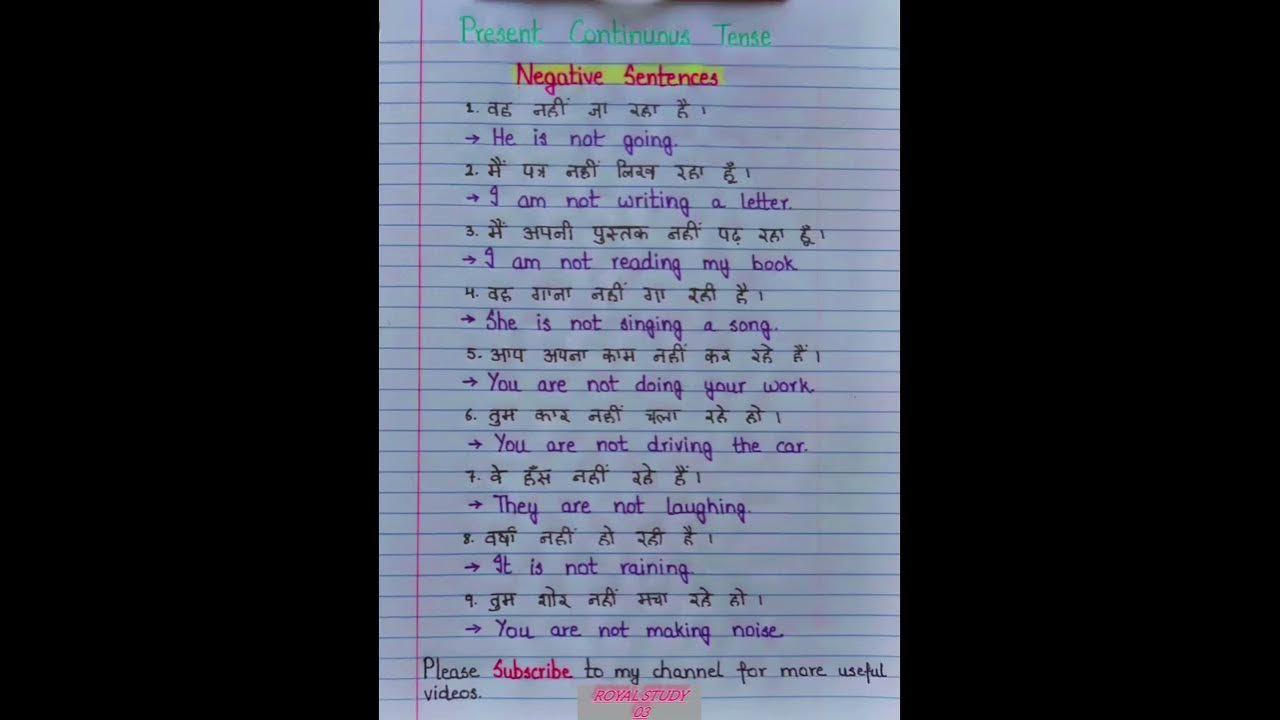 Present Continuous Tense
Negative Sentences
1. वह नहीं जा रहा है ।
→ He is not going.
2. मैं पत्र नहीं लिख रहा हूँ ।
→ I am not writing a letter.
3. मैं अपनी पुस्तक नहीं पढ़ रहा हूँ ।
→ I am not reading my book
4. वह गाना नहीं गा रही है ।
→ She is not singing a song.
5. आप अपना काम नहीं कर रहे हैं ।
→ You are not doing your work.
6. तुम कार नहीं चला रहे हो ।
→ You are not driving the car.
7. वे हँस नहीं रहे हैं ।
→ They are not laughing.
8. वर्षा नहीं हो रही है ।
→ It is not raining.
9. तुम शोर नहीं मचा रहे हो ।
→ You are not making noise.
Please Subscribe to my channel for more useful
videos.
ROYAL STUDY
03